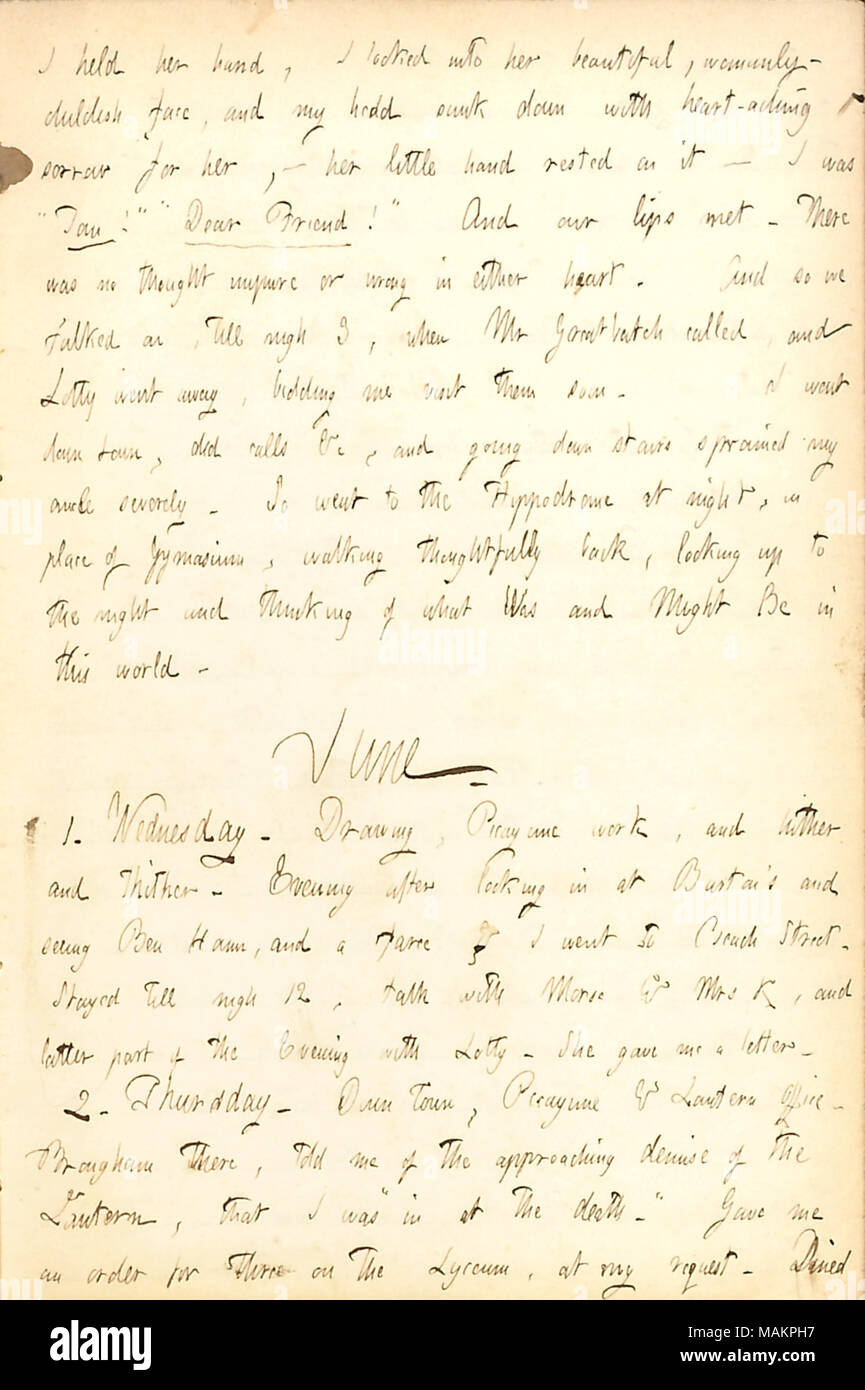 I held her hand, I looked into her beautiful, womanly-
childish face, and my head sunk down with heart-aching
sorrow for her, — her little hand rested on it — I was
"Tom!" "Dear Friend!" And our lips met — There
was no thought impure or wrong in either heart. And so we
talked on, till nigh 3, when Mr Greatbatch called, and
Lotty went away, bidding me visit them soon. I went
down town, did calls &c, and going down stairs sprained my
ancle severely. So went to the Hippodrome at night, in
place of Gymasium, walking thoughtfully back, looking up to
the night and thinking of what Was and Might Be in
this world —
June —
1. Wednesday. Drawing, Picayune work, and hither
and thither. Evening after looking in at Burton's and
seeing Ben Hann, and a farce & I went to Beach Street.
Stayed till nigh 12, talk with Morse & Mrs K, and
latter part of the Evening with Lotty. She gave me a letter.
2. Thursday. Down town, Picayune & Lantern office.
Brougham there, told me of the approaching demise of the
Lantern, that I was "in at the death." Gave me
an order for three on the Lyceum, at my request. Dined
alamy
Image ID: MAKPH7
www.alamy.com